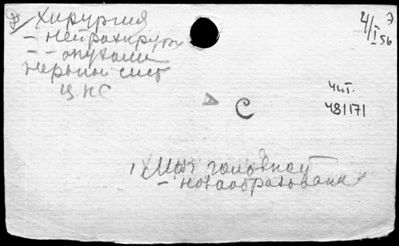 Хирургия
– нейрохирург
– – опухоли
нервной сист
ЦНС
4/I 56
Э
чит.
481171
С
1) Мозг головной
– новообразования